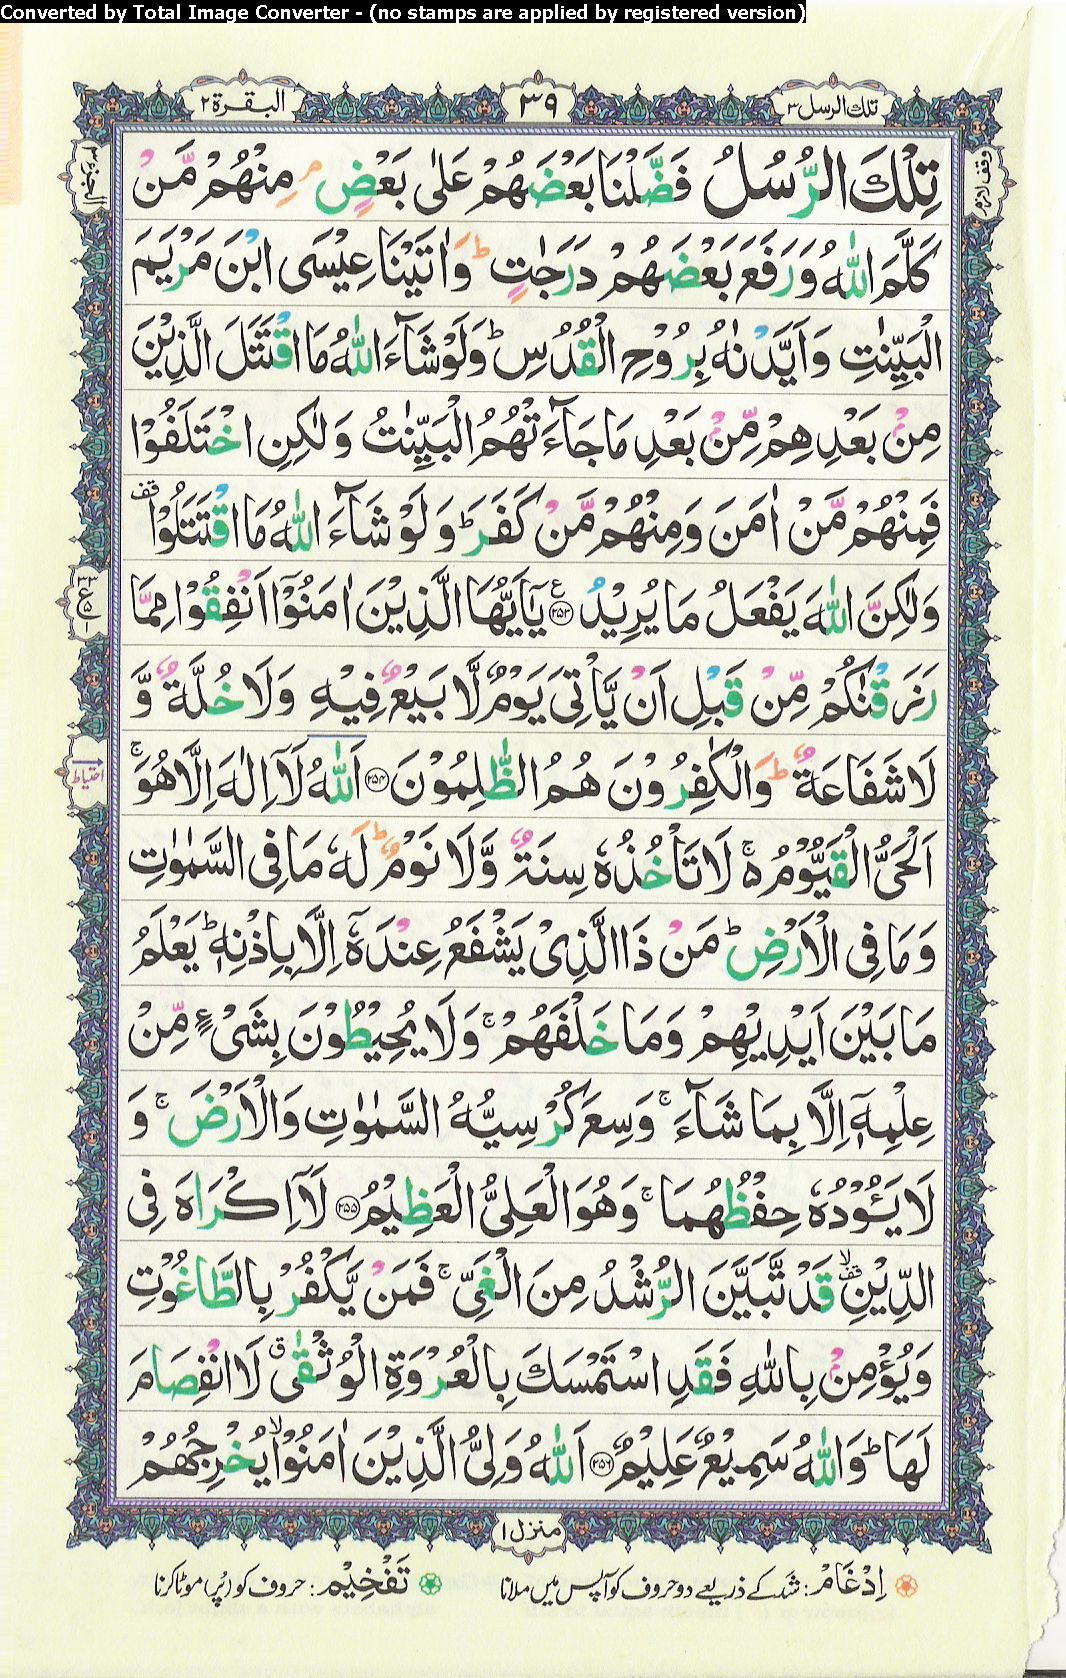 Converted by Total Image Converter - (no stamps are applied by registered version)
تلك الرسل ٣ ٣٩ البقرة ٢
وقف لازم
الجزء ٣
تِلۡكَ الرُّسُلُ فَضَّلۡنَا بَعۡضَهُمۡ عَلٰى بَعۡضٍ‌ۘ مِنۡهُمۡ مَّنۡ
كَلَّمَ اللّٰهُ وَرَفَعَ بَعۡضَهُمۡ دَرَجٰتٍ‌ؕ وَاٰتَيۡنَا عِيۡسَى ابۡنَ مَرۡيَمَ
الۡبَيِّنٰتِ وَاَيَّدۡنٰهُ بِرُوۡحِ الۡقُدُسِ‌ؕ وَلَوۡ شَآءَ اللّٰهُ مَا اقۡتَتَلَ الَّذِيۡنَ
مِنۡۢ بَعۡدِهِمۡ مِّنۡۢ بَعۡدِ مَا جَآءَتۡهُمُ الۡبَيِّنٰتُ وَلٰكِنِ اخۡتَلَفُوۡا
فَمِنۡهُمۡ مَّنۡ اٰمَنَ وَمِنۡهُمۡ مَّنۡ كَفَرَ‌ؕ وَلَوۡ شَآءَ اللّٰهُ مَا اقۡتَتَلُوۡا قف
وَلٰكِنَّ اللّٰهَ يَفۡعَلُ مَا يُرِيۡدُ ‏﴿۲۵۳﴾‏ ع يٰٓاَيُّهَا الَّذِيۡنَ اٰمَنُوۡۤا اَنۡفِقُوۡا مِمَّا
رَزَقۡنٰكُمۡ مِّنۡ قَبۡلِ اَنۡ يَّاۡتِىَ يَوۡمٌ لَّا بَيۡعٌ فِيۡهِ وَلَا خُلَّةٌ وَّ
لَا شَفَاعَةٌ ‌ؕ وَالۡكٰفِرُوۡنَ هُمُ الظّٰلِمُوۡنَ ‏﴿۲۵۴﴾‏ اَللّٰهُ لَاۤ اِلٰهَ اِلَّا هُوَ‌ۚ
احتیاط
اَلۡحَىُّ الۡقَيُّوۡمُ ۚ لَا تَاۡخُذُهٗ سِنَةٌ وَّلَا نَوۡمٌ‌ؕ لَهٗ مَا فِى السَّمٰوٰتِ
وَمَا فِى الۡاَرۡضِ‌ؕ مَنۡ ذَا الَّذِىۡ يَشۡفَعُ عِنۡدَهٗۤ اِلَّا بِاِذۡنِهٖ‌ؕ يَعۡلَمُ
مَا بَيۡنَ اَيۡدِيۡهِمۡ وَمَا خَلۡفَهُمۡ‌ۚ وَلَا يُحِيۡطُوۡنَ بِشَىۡءٍ مِّنۡ
عِلۡمِهٖۤ اِلَّا بِمَا شَآءَ ۚ وَسِعَ كُرۡسِيُّهُ السَّمٰوٰتِ وَالۡاَرۡضَ‌ۚ وَ
لَا يَـــُٔوۡدُهٗ حِفۡظُهُمَا ‌ۚ وَهُوَ الۡعَلِىُّ الۡعَظِيۡمُ ‏﴿۲۵۵﴾‏ لَاۤ اِكۡرَاهَ فِى
الدِّيۡنِ‌ۙ قف قَدۡ تَّبَيَّنَ الرُّشۡدُ مِنَ الۡغَىِّ‌ۚ فَمَنۡ يَّكۡفُرۡ بِالطَّاغُوۡتِ
وَيُؤۡمِنۡۢ بِاللّٰهِ فَقَدِ اسۡتَمۡسَكَ بِالۡعُرۡوَةِ الۡوُثۡقٰى ق لَا انْفِصَامَ
لَهَا‌ؕ وَاللّٰهُ سَمِيۡعٌ عَلِيۡمٌ ‏﴿۲۵۶﴾‏ اَللّٰهُ وَلِىُّ الَّذِيۡنَ اٰمَنُوۡاۙ يُخۡرِجُهُمۡ
منزل ١
اِدْغَامْ: شد کے ذریعے دو حروف کو آپس میں ملانا تَفْخِیْم: حروف کو (پُر) موٹا کرنا